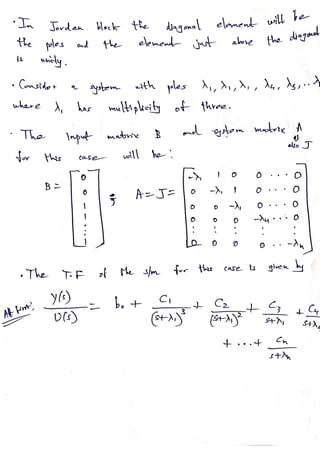 • In Jordan block the diagonal element will be
the poles and the element just above the diagonal
is unity.
• Consider a system with poles λ₁, λ₁, λ₁, λ₄, λ₅, ... λ
where λ₁ has multiplicity of three.
• The Input matrix B and system matrix A
also J
for this case will be:
B = [0 0 1 1 ⋮ 1] ; A = J = [-λ 1 0 0 ... 0
0 -λ 1 0 ... 0
0 0 -λ₁ 0 ... 0
0 0 0 -λ₄ ... 0
⋮ ⋮ ⋮ ⋮ ⋮
0 0 0 0 ... -λn]
• The T.F of the s/m for this case is given by
Y(s)/U(s) = b₀ + C₁/(s+λ₁)³ + C₂/(s+λ₁)² + C₃/s+λ₁ + C₄/s+λ₄
+ ... + Cn/s+λn